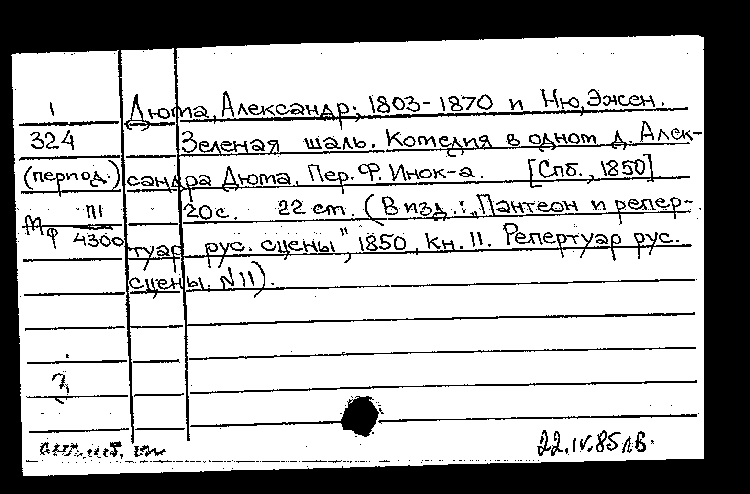 1 Дюма, Александр; 1803-1870 и Ню, Эжен.
324 Зеленая шаль. Комедия в одном д. Алек-
(период.) сандра Дюма. Пер. Ф. Инок-а. [Спб., 1850]
20с. 22 см. (В изд.: „Пантеон и репер-
Мф П1/4300
туар рус. сцены", 1850, кн. 11. Репертуар рус.
сцены, №11).
22.IV.85 ЛВ.